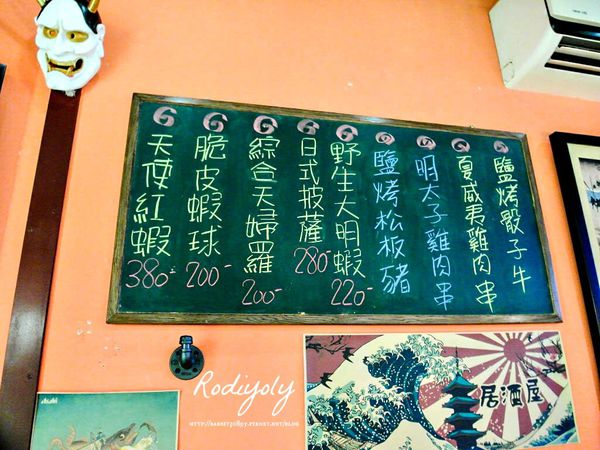 鹽烤骰子牛
夏威夷雞肉串
明太子雞肉串
鹽烤松板豬
野生大明蝦
220-
日式披薩
280-
綜合天婦羅
200-
脆皮蝦球
200-
天使紅蝦
380-
居酒屋
Asahi
Rodiyoly